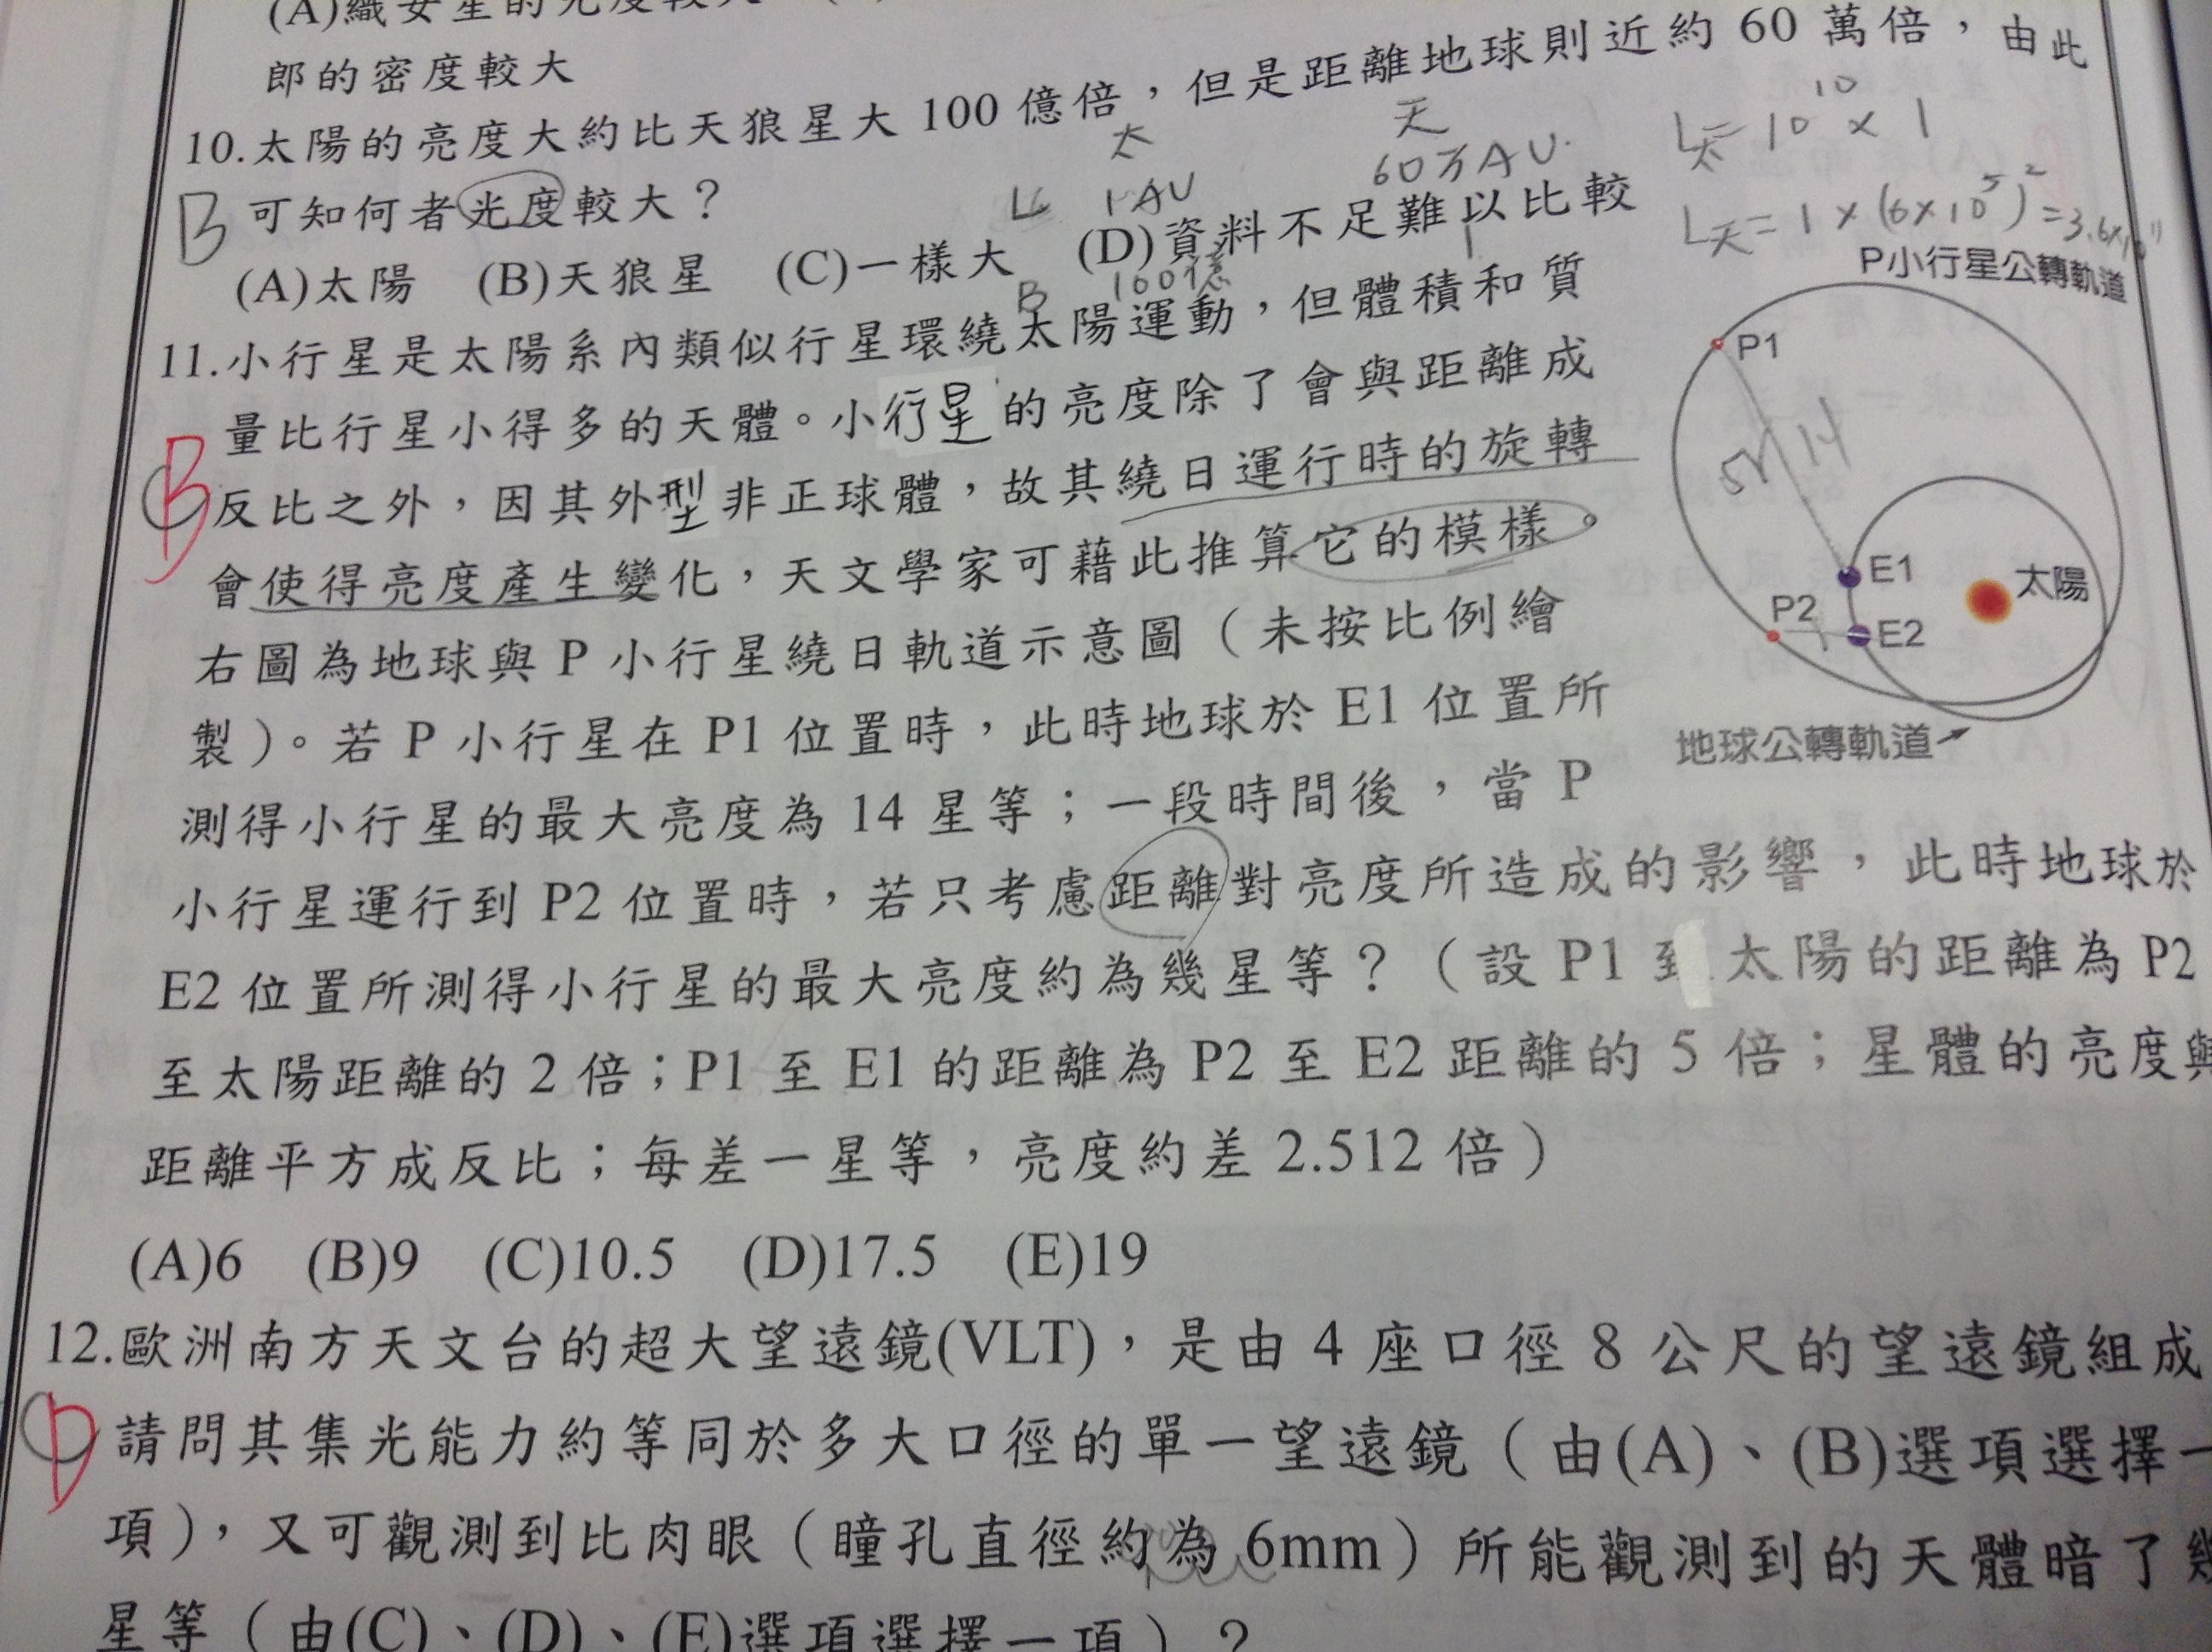 (A)織女星的光度較大
郎的密度較大
10.太陽的亮度大約比天狼星大 100 億倍，但是距離地球則近約 60 萬倍，由此
可知何者光度較大？
(A)太陽 (B)天狼星 (C)一樣大 (D)資料不足難以比較
B
太
天
L
1AU
60万AU.
B
100億
1
L太=10^10 x 1
L天=1x(6x10^5)^2=3.6x10^11
11.小行星是太陽系內類似行星環繞太陽運動，但體積和質
量比行星小得多的天體。小行星的亮度除了會與距離成
反比之外，因其外型非正球體，故其繞日運行時的旋轉
會使得亮度產生變化，天文學家可藉此推算它的模樣。
右圖為地球與 P 小行星繞日軌道示意圖（未按比例繪
製）。若 P 小行星在 P1 位置時，此時地球於 E1 位置所
測得小行星的最大亮度為 14 星等；一段時間後，當 P
小行星運行到 P2 位置時，若只考慮距離對亮度所造成的影響，此時地球於
E2 位置所測得小行星的最大亮度約為幾星等？（設 P1 到太陽的距離為 P2
至太陽距離的 2 倍；P1 至 E1 的距離為 P2 至 E2 距離的 5 倍；星體的亮度與
距離平方成反比；每差一星等，亮度約差 2.512 倍）
(A)6 (B)9 (C)10.5 (D)17.5 (E)19
B
P小行星公轉軌道
P1
5r
14
E1
太陽
P2
E2
地球公轉軌道
12.歐洲南方天文台的超大望遠鏡(VLT)，是由 4 座口徑 8 公尺的望遠鏡組成
請問其集光能力約等同於多大口徑的單一望遠鏡（由(A)、(B)選項選擇一
項），又可觀測到比肉眼（瞳孔直徑約為 6mm）所能觀測到的天體暗了幾
星等（由(C)、(D)、(E)選項選擇一項）？
D